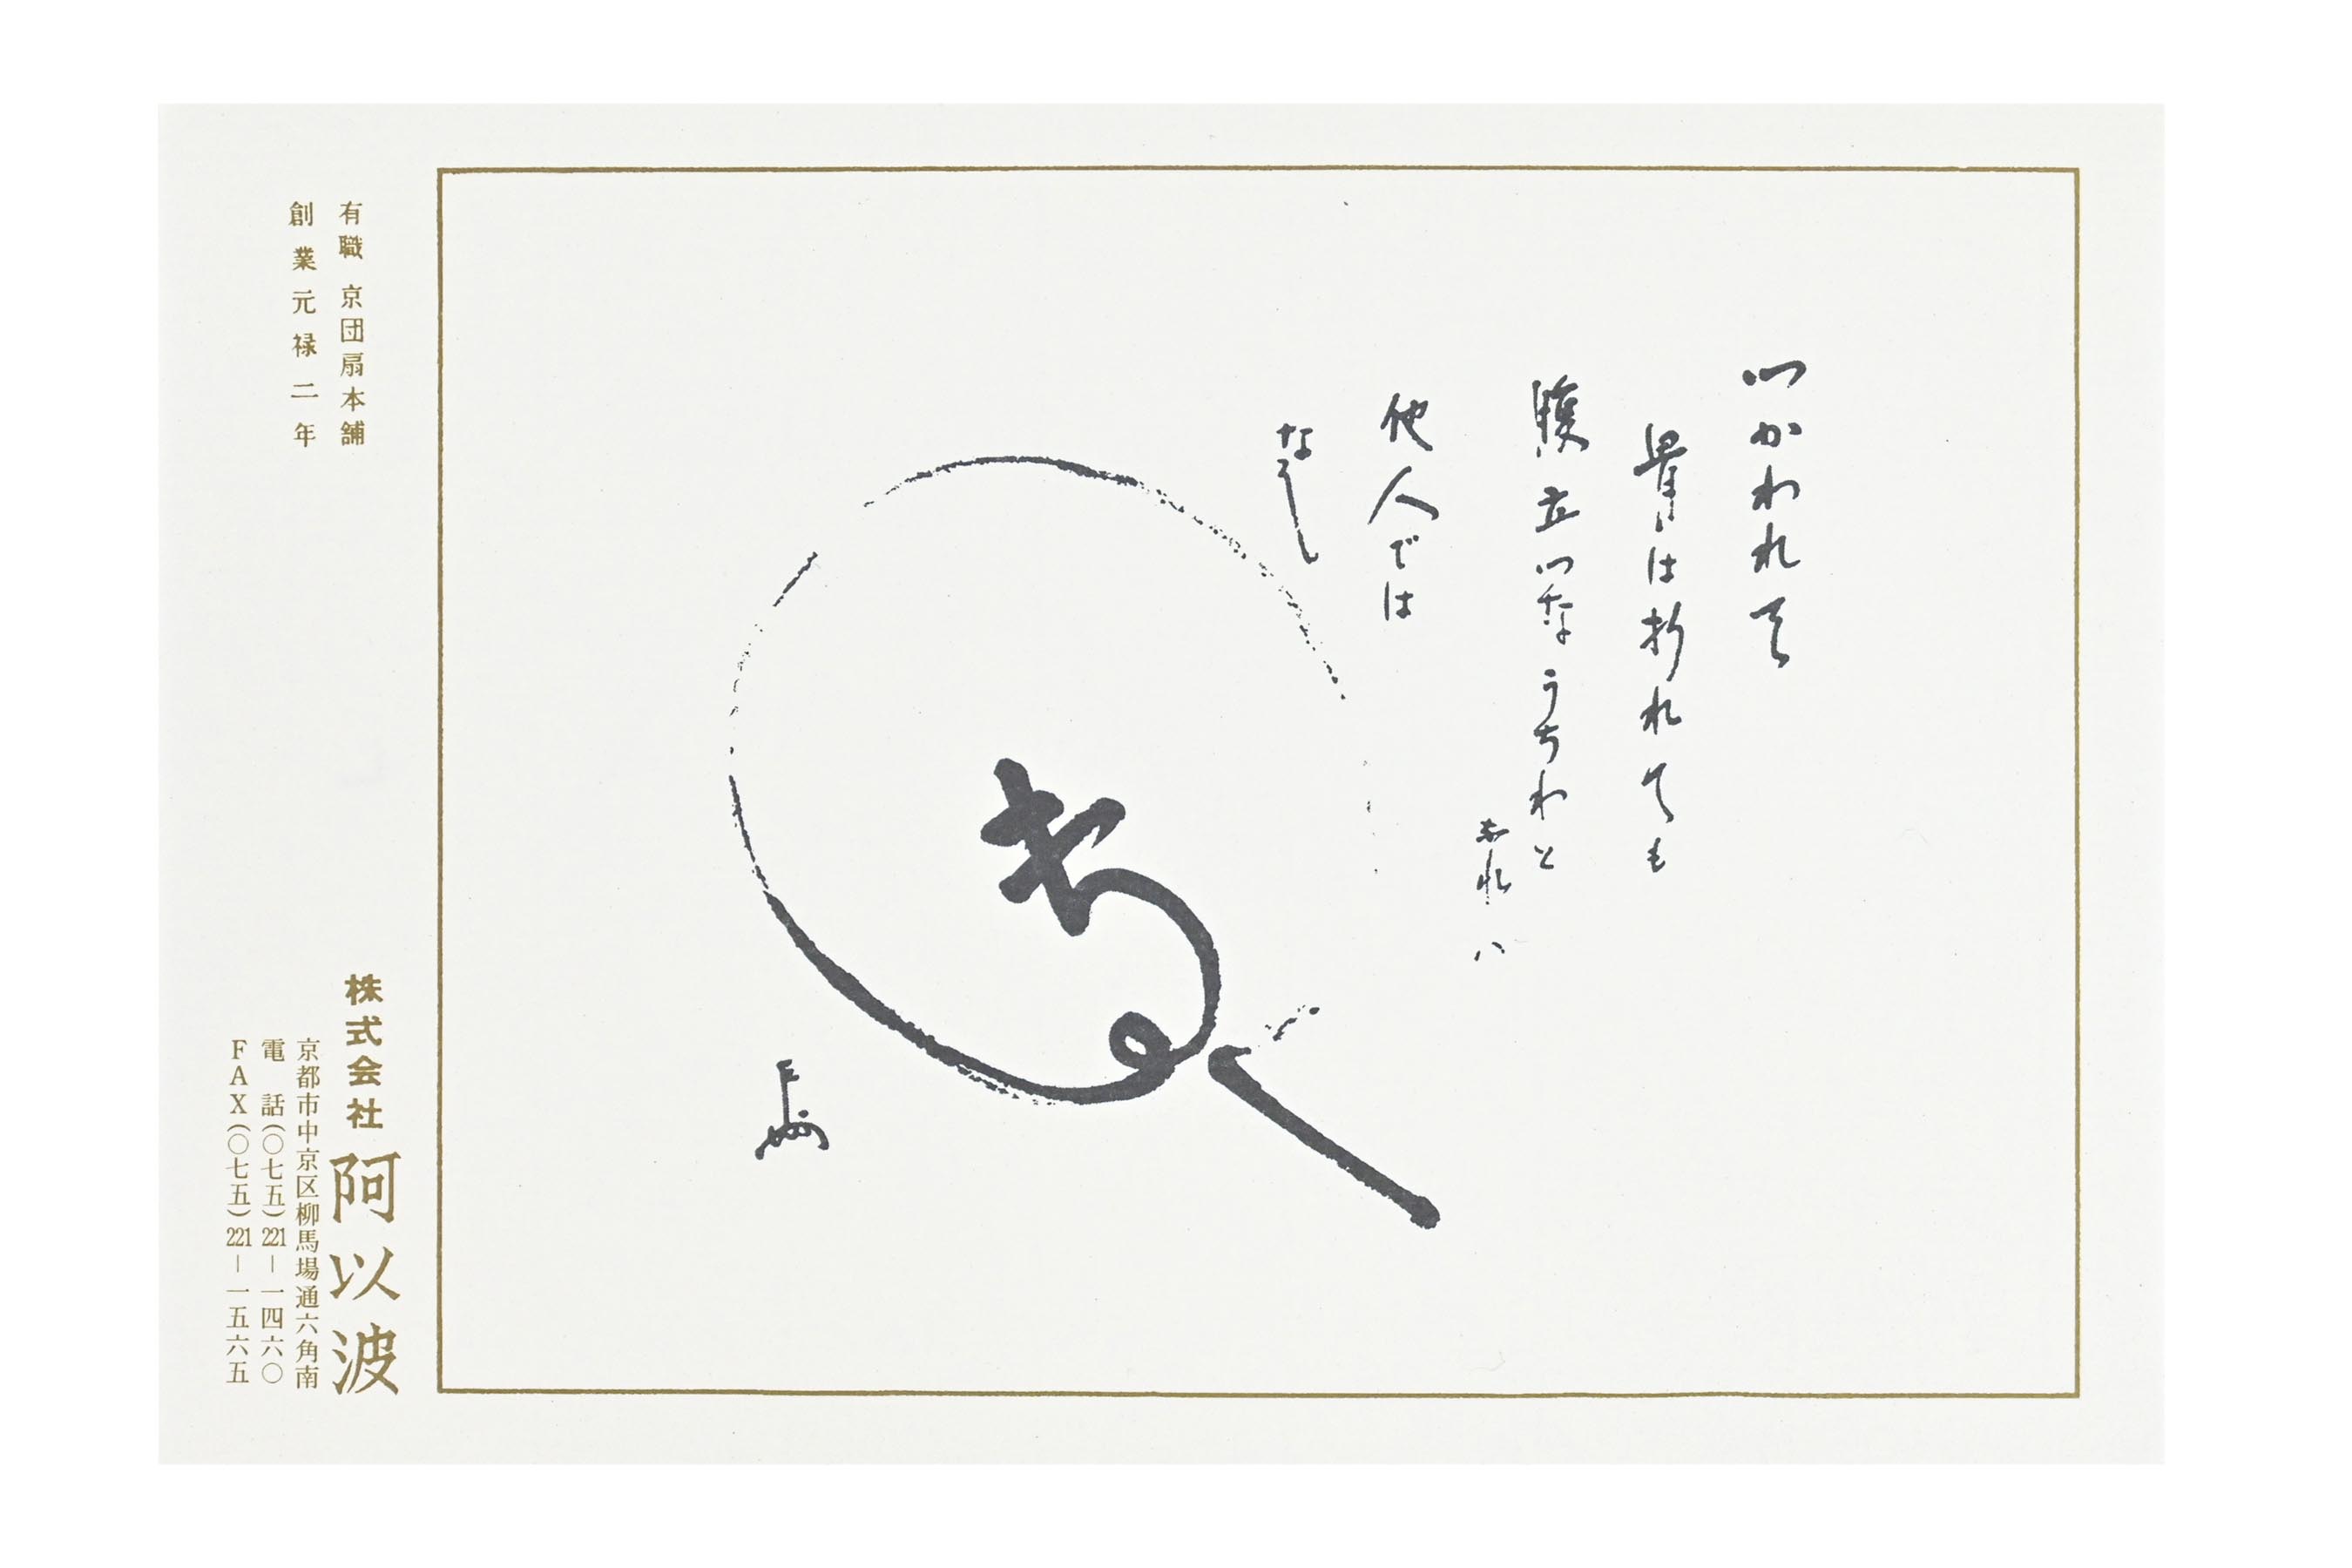 つかわれて
骨は折れても
腹立つなうちわと
他人では
なし
有職 京団扇本舗
創業元禄二年
株式会社 阿以波
京都市中京区柳馬場通六角南
電 話(〇七五)221-一四六〇
FAX(〇七五)221-一五六五